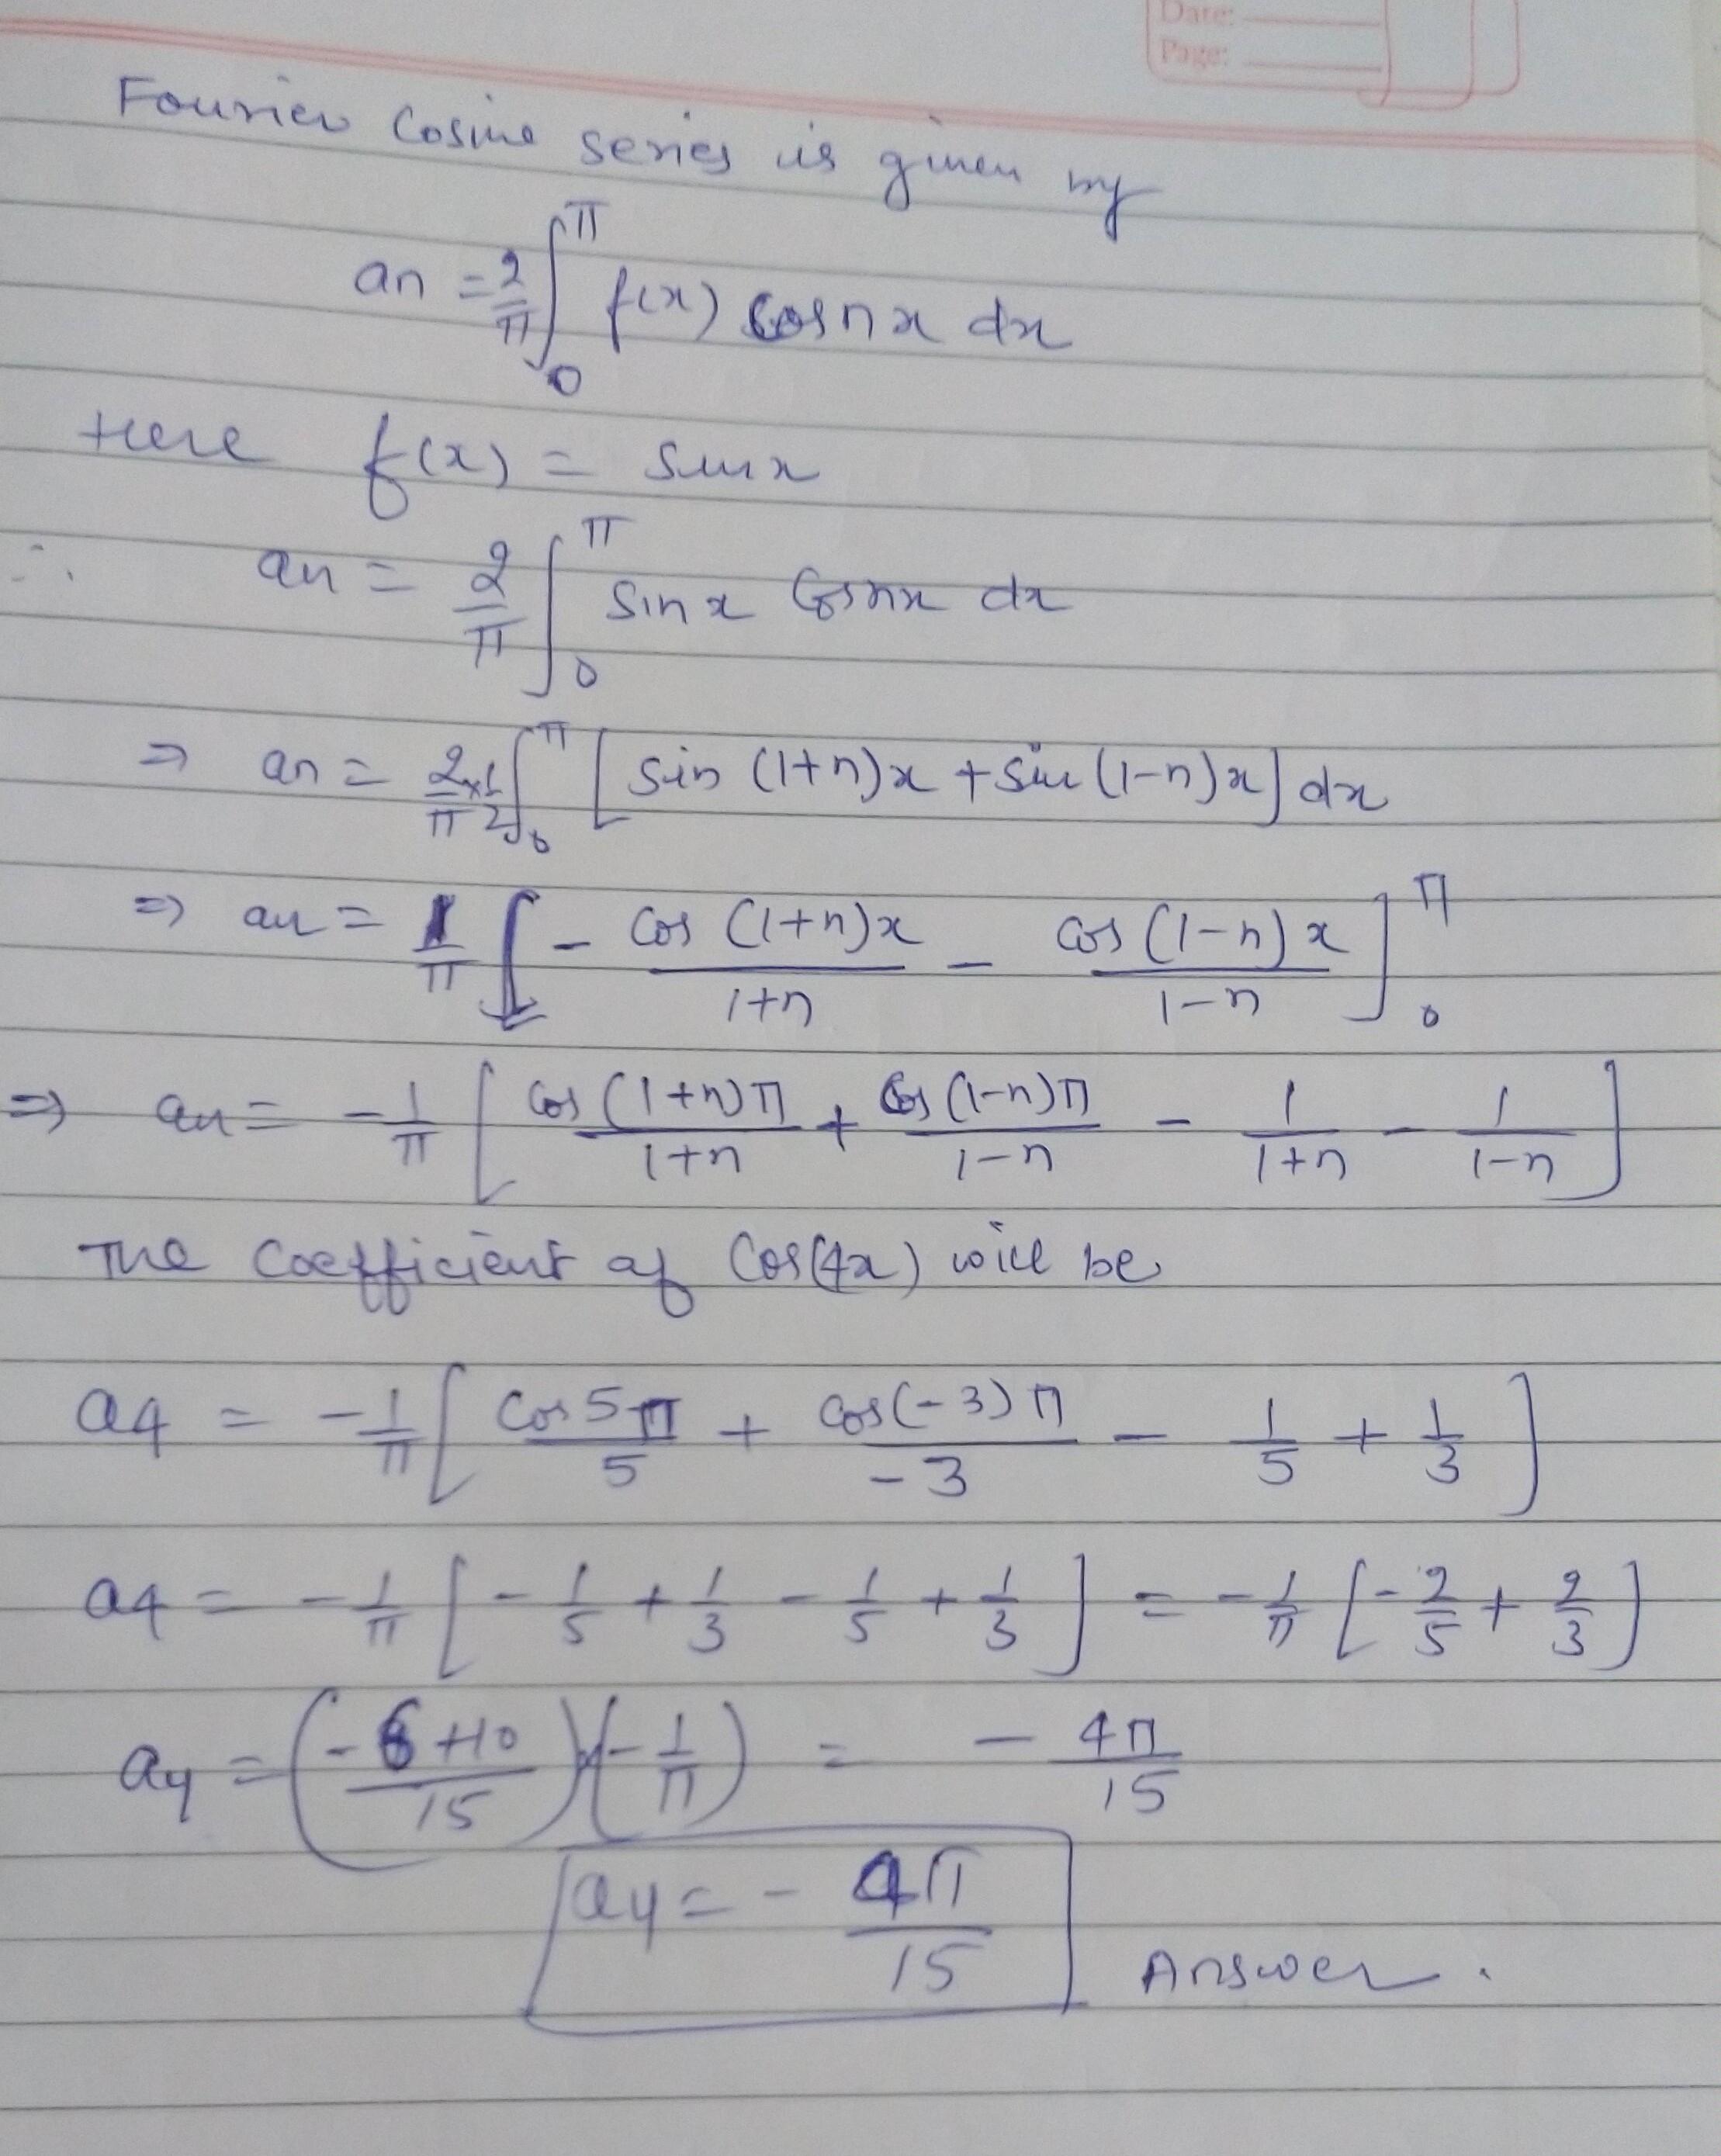 Date:
Page:
Fourier Cosine series is given by
an = 2/π ∫₀^π f(x) cosnx dx
Here f(x) = sinx
∴ an = 2/π ∫₀^π sinx cosnx dx
⇒ an = 2/π × 1/2 ∫₀^π [sin (1+n)x + sin (1-n)x] dx
⇒ an = 1/π [- cos (1+n)x / 1+n - cos (1-n)x / 1-n]₀^π
⇒ an = -1/π [cos (1+n)π / 1+n + cos (1-n)π / 1-n - 1/1+n - 1/1-n]
The Coefficient of Cos(4x) will be
a4 = -1/π [cos5π / 5 + cos(-3)π / -3 - 1/5 + 1/3]
a4 = -1/π [-1/5 + 1/3 - 1/5 + 1/3] = -1/π [-2/5 + 2/3]
a4 = (-6+10 / 15) × (-1/π) = - 4π/15
a4 = - 4π/15 Answer.